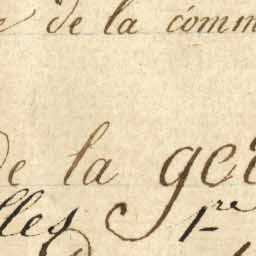 de la comm
de la ge
lles 1re